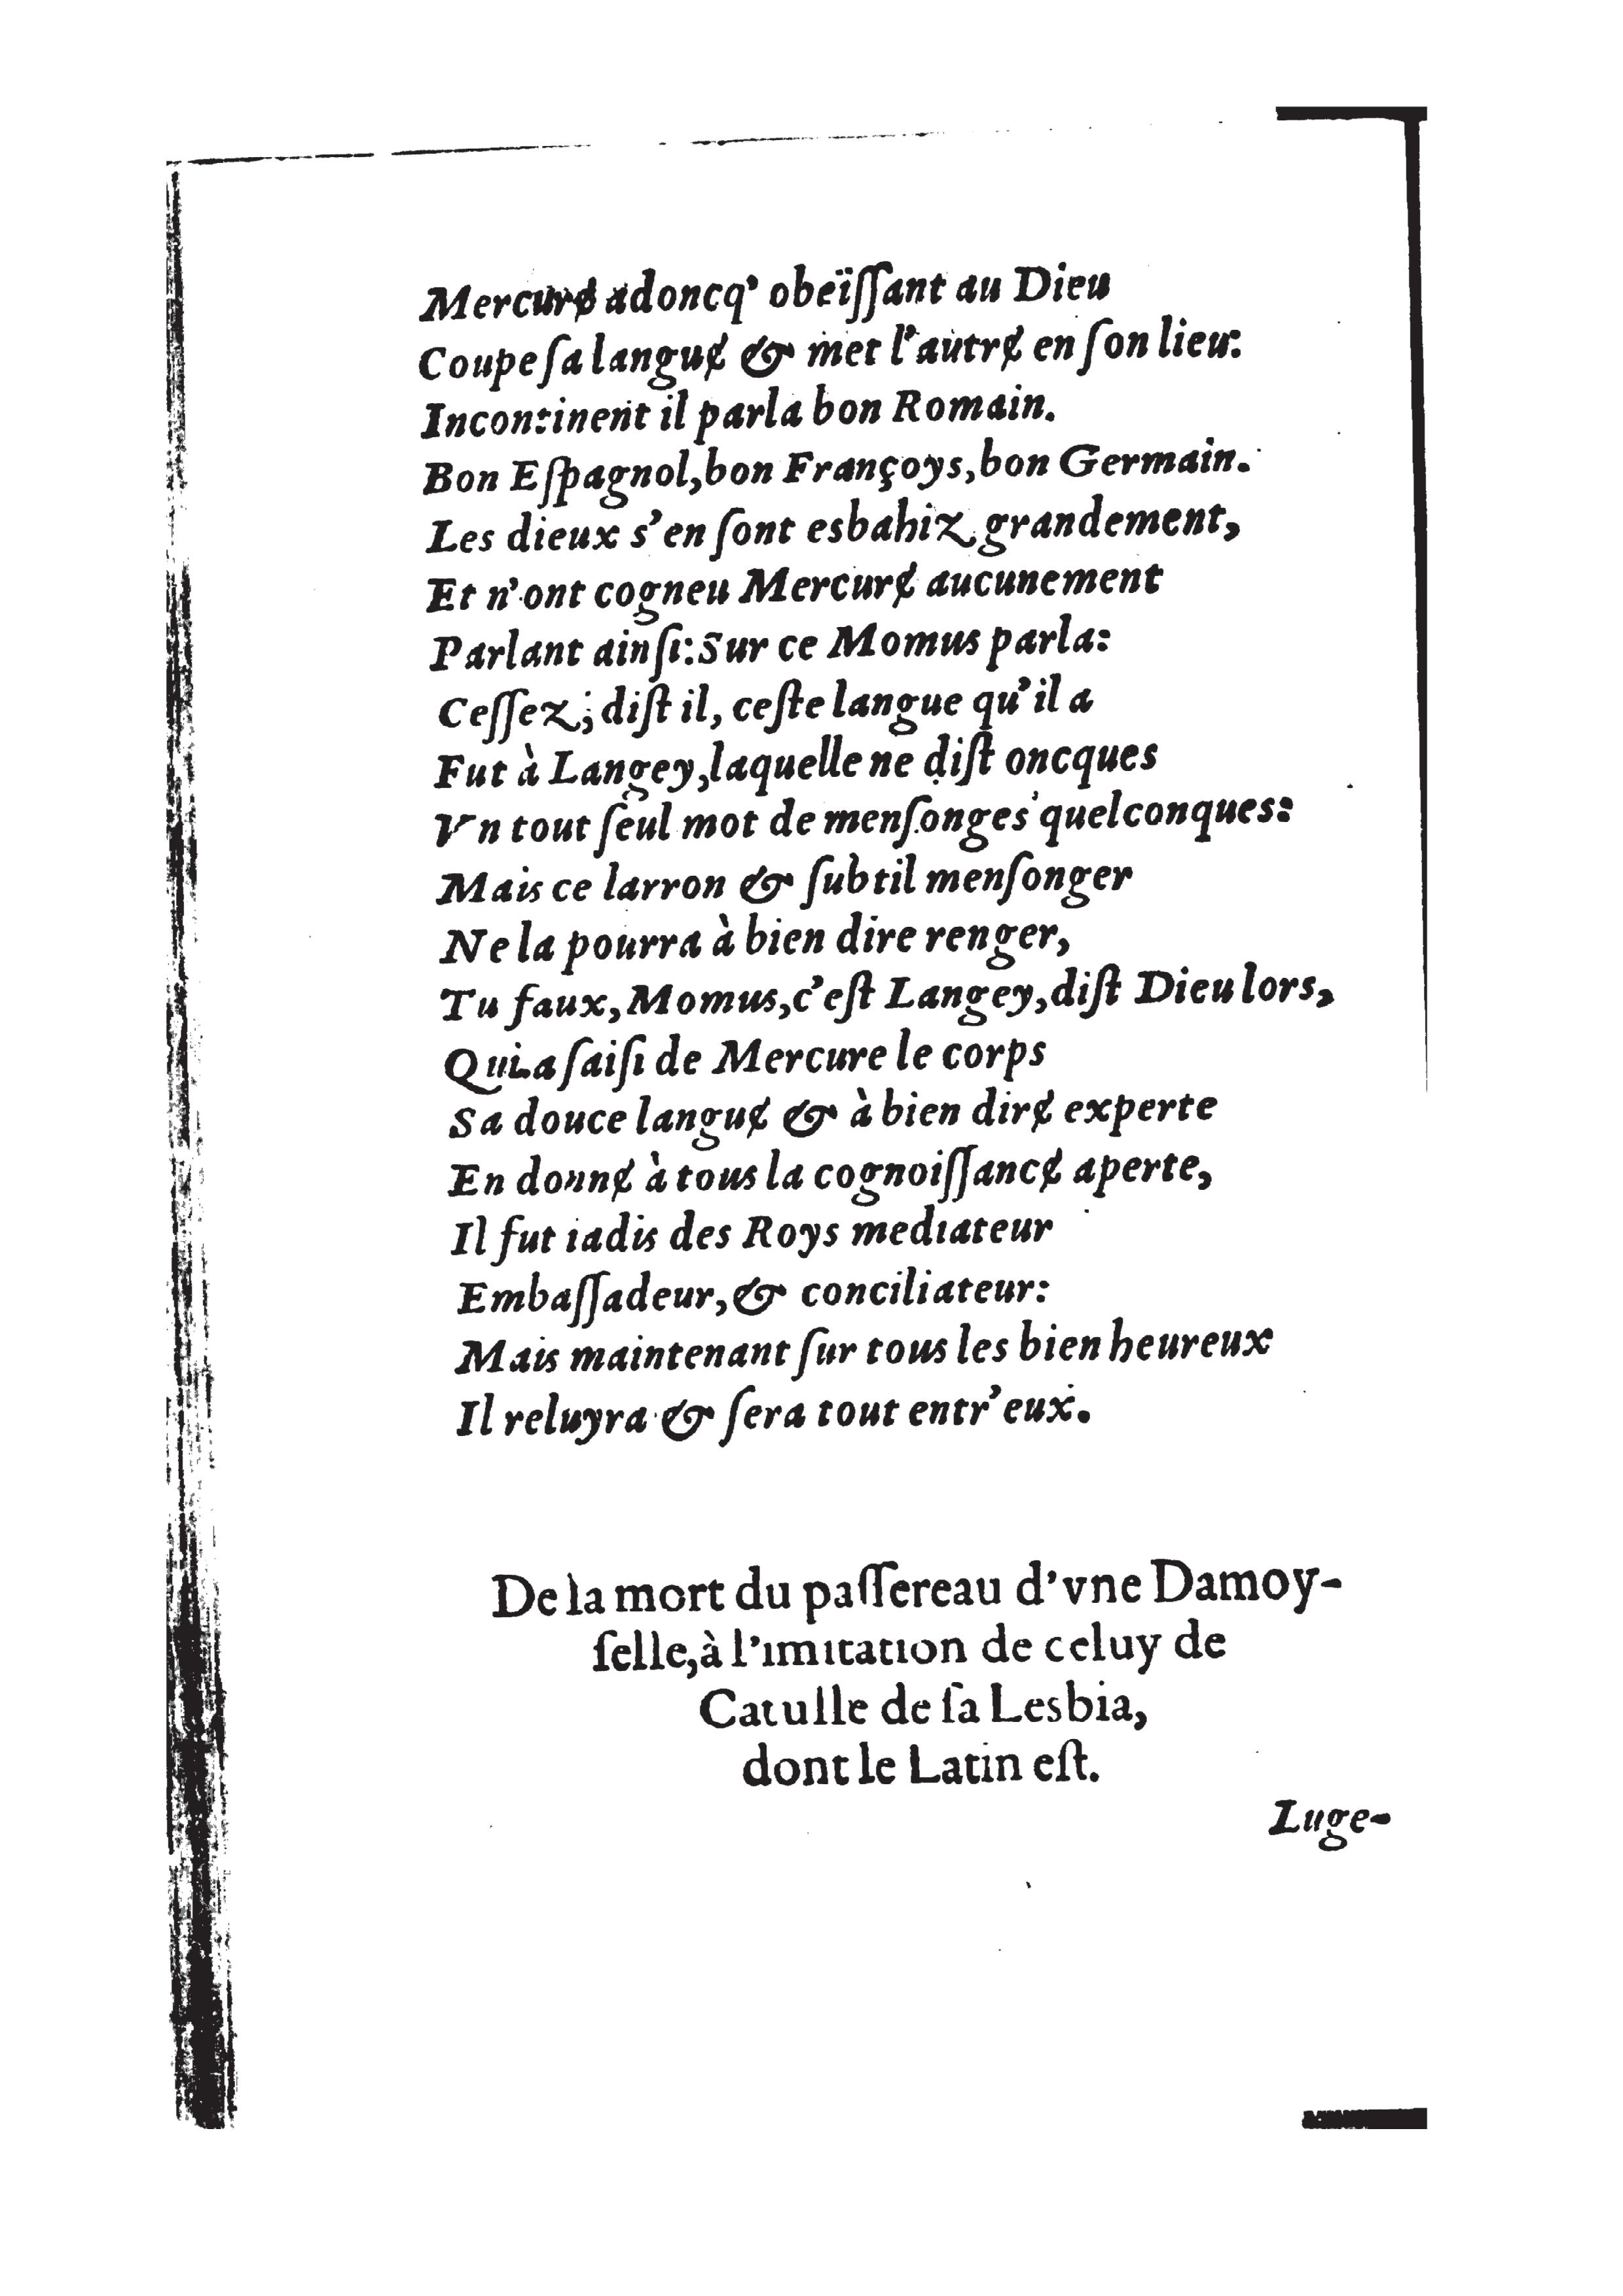 Mercurɇ adoncq' obeïſſant au Dieu
Coupe ſa languɇ & met l'autrɇ en ſon lieu:
Incontinent il parla bon Romain.
Bon Eſpagnol, bon Françoys, bon Germain.
Les dieux s'en ſont esbahiz grandement,
Et n'ont cogneu Mercurɇ aucunement
Parlant ainſi: Sur ce Momus parla:
Ceſſez; diſt il, ceſte langue qu'il a
Fut à Langey, laquelle ne diſt oncques
Vn tout ſeul mot de menſonges quelconques:
Mais ce larron & ſubtil menſonger
Ne la pourra à bien dire renger,
Tu faux, Momus, c'eſt Langey, diſt Dieu lors,
Qui a ſaiſi de Mercure le corps
Sa douce languɇ & à bien dirɇ experte
En donnɇ à tous la cognoiſſancɇ aperte,
Il fut iadis des Roys mediateur
Embaſſadeur, & conciliateur:
Mais maintenant ſur tous les bien heureux
Il reluyra & ſera tout entr'eux.
De la mort du paſſereau d'vne Damoy-
ſelle, à l'imitation de celuy de
Catulle de ſa Lesbia,
dont le Latin eſt.
Luge-